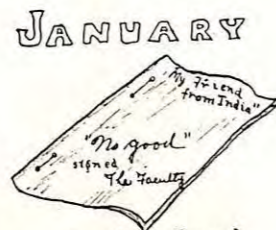 JANUARY
"My Friend
from India"
"No good"
signed
The Faculty